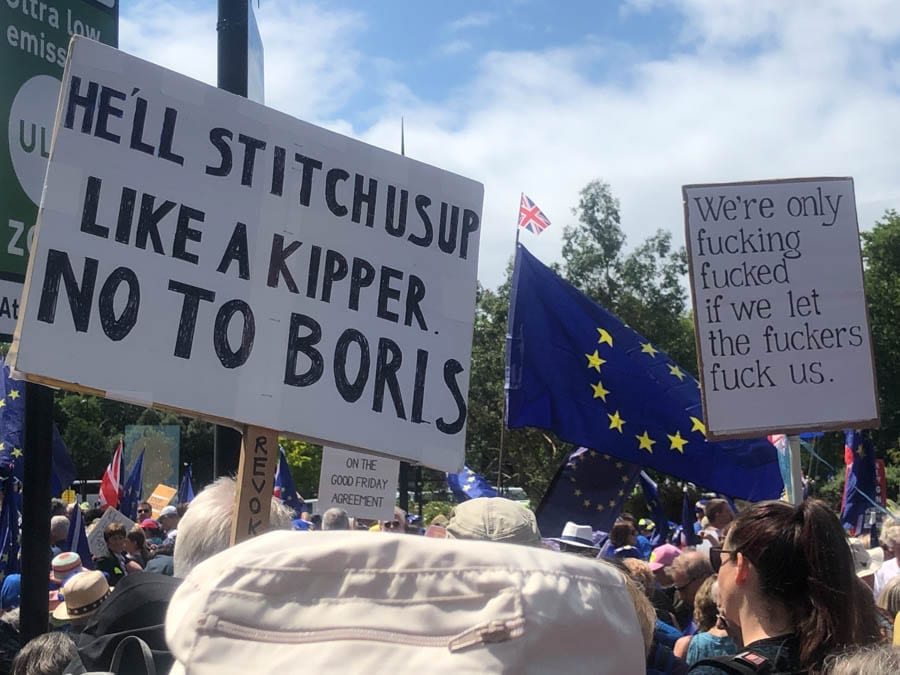 ultra low
emiss
UL
Zo
At
HE'LL STITCH US UP
LIKE A KIPPER.
NO TO BORIS
REVOK
ON THE
GOOD FRIDAY
AGREEMENT
We're only
fucking
fucked
if we let
the fuckers
fuck us.